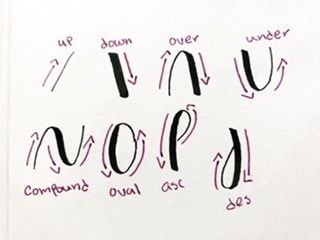 up down over under
compound oval asc des